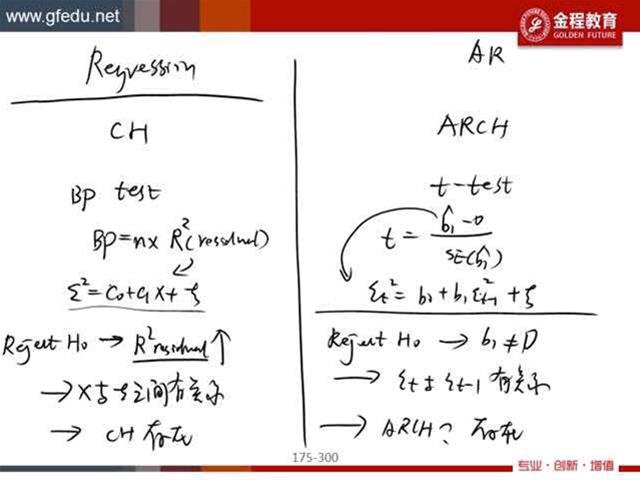 www.gfedu.net
金程教育
GOLDEN FUTURE
Regression
CH
BP test
BP=n× R²(residual)
ε²=c₀+c₁X+ξ
Reject H₀ → R²residual↑
→ X与ε之间有关系
→ CH 存在
AR
ARCH
t-test
t = (b̂₁-0)/SE(b̂₁)
εt²= b₀+b₁ε²t-1+ξ
Reject H₀ → b₁≠0
→ εt与εt-1 有关系
→ ARCH? 存在
175-300
专业·创新·增值